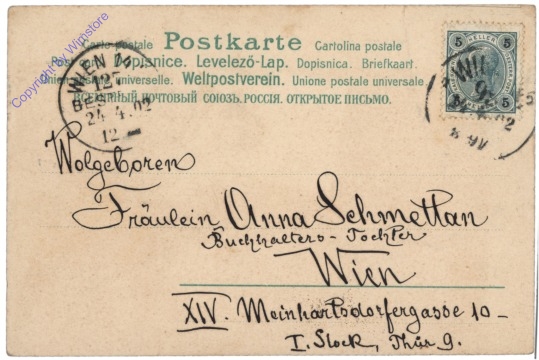 Postkarte
Carte postale
Cartolina postale
Dopisnice. Levelező-Lap. Dopisnica. Briefkaart.
universelle. Weltpostverein. Unione postale universale
ВСЕМIРНЫЙ ПОЧТОВЫЙ СОЮЗЪ. РОССIЯ. ОТКРЫТОЕ ПИСЬМО.
5 HELLER 5
5
WIEN
125
BES
24.4.02
12
WIE
Copyright by Wimstore
Wolgeboren
Fräulein Anna Schmettan
Buchhalters-Tochter
Wien
XIV. Meinhartsdorfergasse 10-
I. Stock, Thür 9.